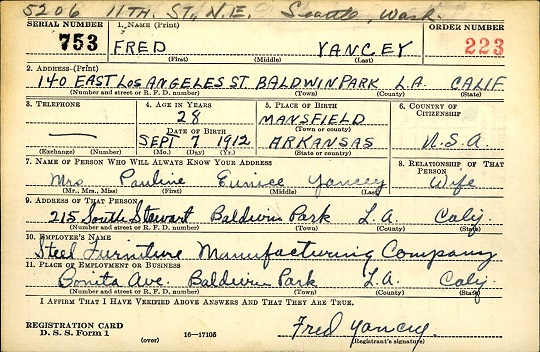 5206 11TH ST, N.E. Seattle, Wash.
SERIAL NUMBER 1. NAME (Print) ORDER NUMBER
753 FRED YANCEY 223
(First) (Middle) (Last)
2. ADDRESS (Print)
140 EAST LOS ANGELES ST. BALDWIN PARK L.A. CALIF
(Number and street or R. F. D. number) (Town) (County) (State)
3. TELEPHONE 4. AGE IN YEARS 5. PLACE OF BIRTH 6. COUNTRY OF CITIZENSHIP
28 MANSFIELD
DATE OF BIRTH (Town or county)
— SEPT 7 1912 ARKANSAS U.S.A.
(Exchange) (Number) (Mo.) (Day) (Yr.) (State or country)
7. NAME OF PERSON WHO WILL ALWAYS KNOW YOUR ADDRESS 8. RELATIONSHIP OF THAT PERSON
Mrs. Pauline Eunice Yancey Wife
(Mr., Mrs., Miss) (First) (Middle) (Last)
9. ADDRESS OF THAT PERSON
215 South Stewart Baldwin Park L.A. Calif.
(Number and street or R. F. D. number) (Town) (County) (State)
10. EMPLOYER'S NAME
Steel Furniture Manufacturing Company
11. PLACE OF EMPLOYMENT OR BUSINESS
Bonita Ave. Baldwin Park L.A. Calif.
(Number and street or R. F. D. number) (Town) (County) (State)
I AFFIRM THAT I HAVE VERIFIED ABOVE ANSWERS AND THAT THEY ARE TRUE.
REGISTRATION CARD
D. S. S. Form 1 (over) 16—17105 Fred Yancey.
(Registrant's signature)